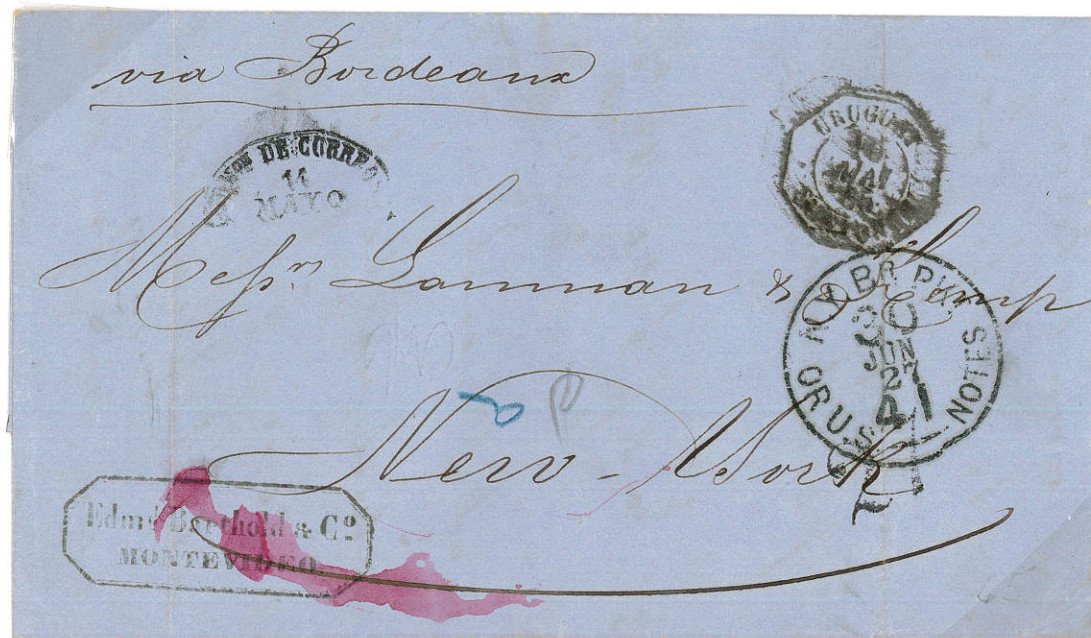 via Bordeaux
DE CORREO
14
MAYO
URUGUAY
MAI
Messrs. Lanman & Kemp
N.Y. BR. PKT
30
JUN
2
41
OR U.S. NOTES
New-York
Edmd. Barthold & Cº
MONTEVIDEO